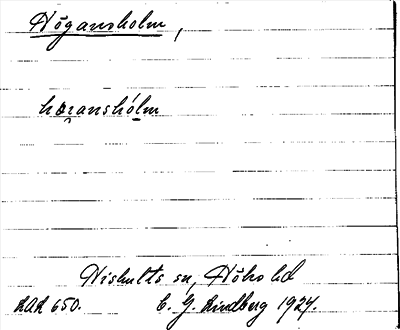 Högansholm,
hœ̨ranshólm
Wishults sn, Höks hd
LAL 650. C. G. Lindberg 1924.